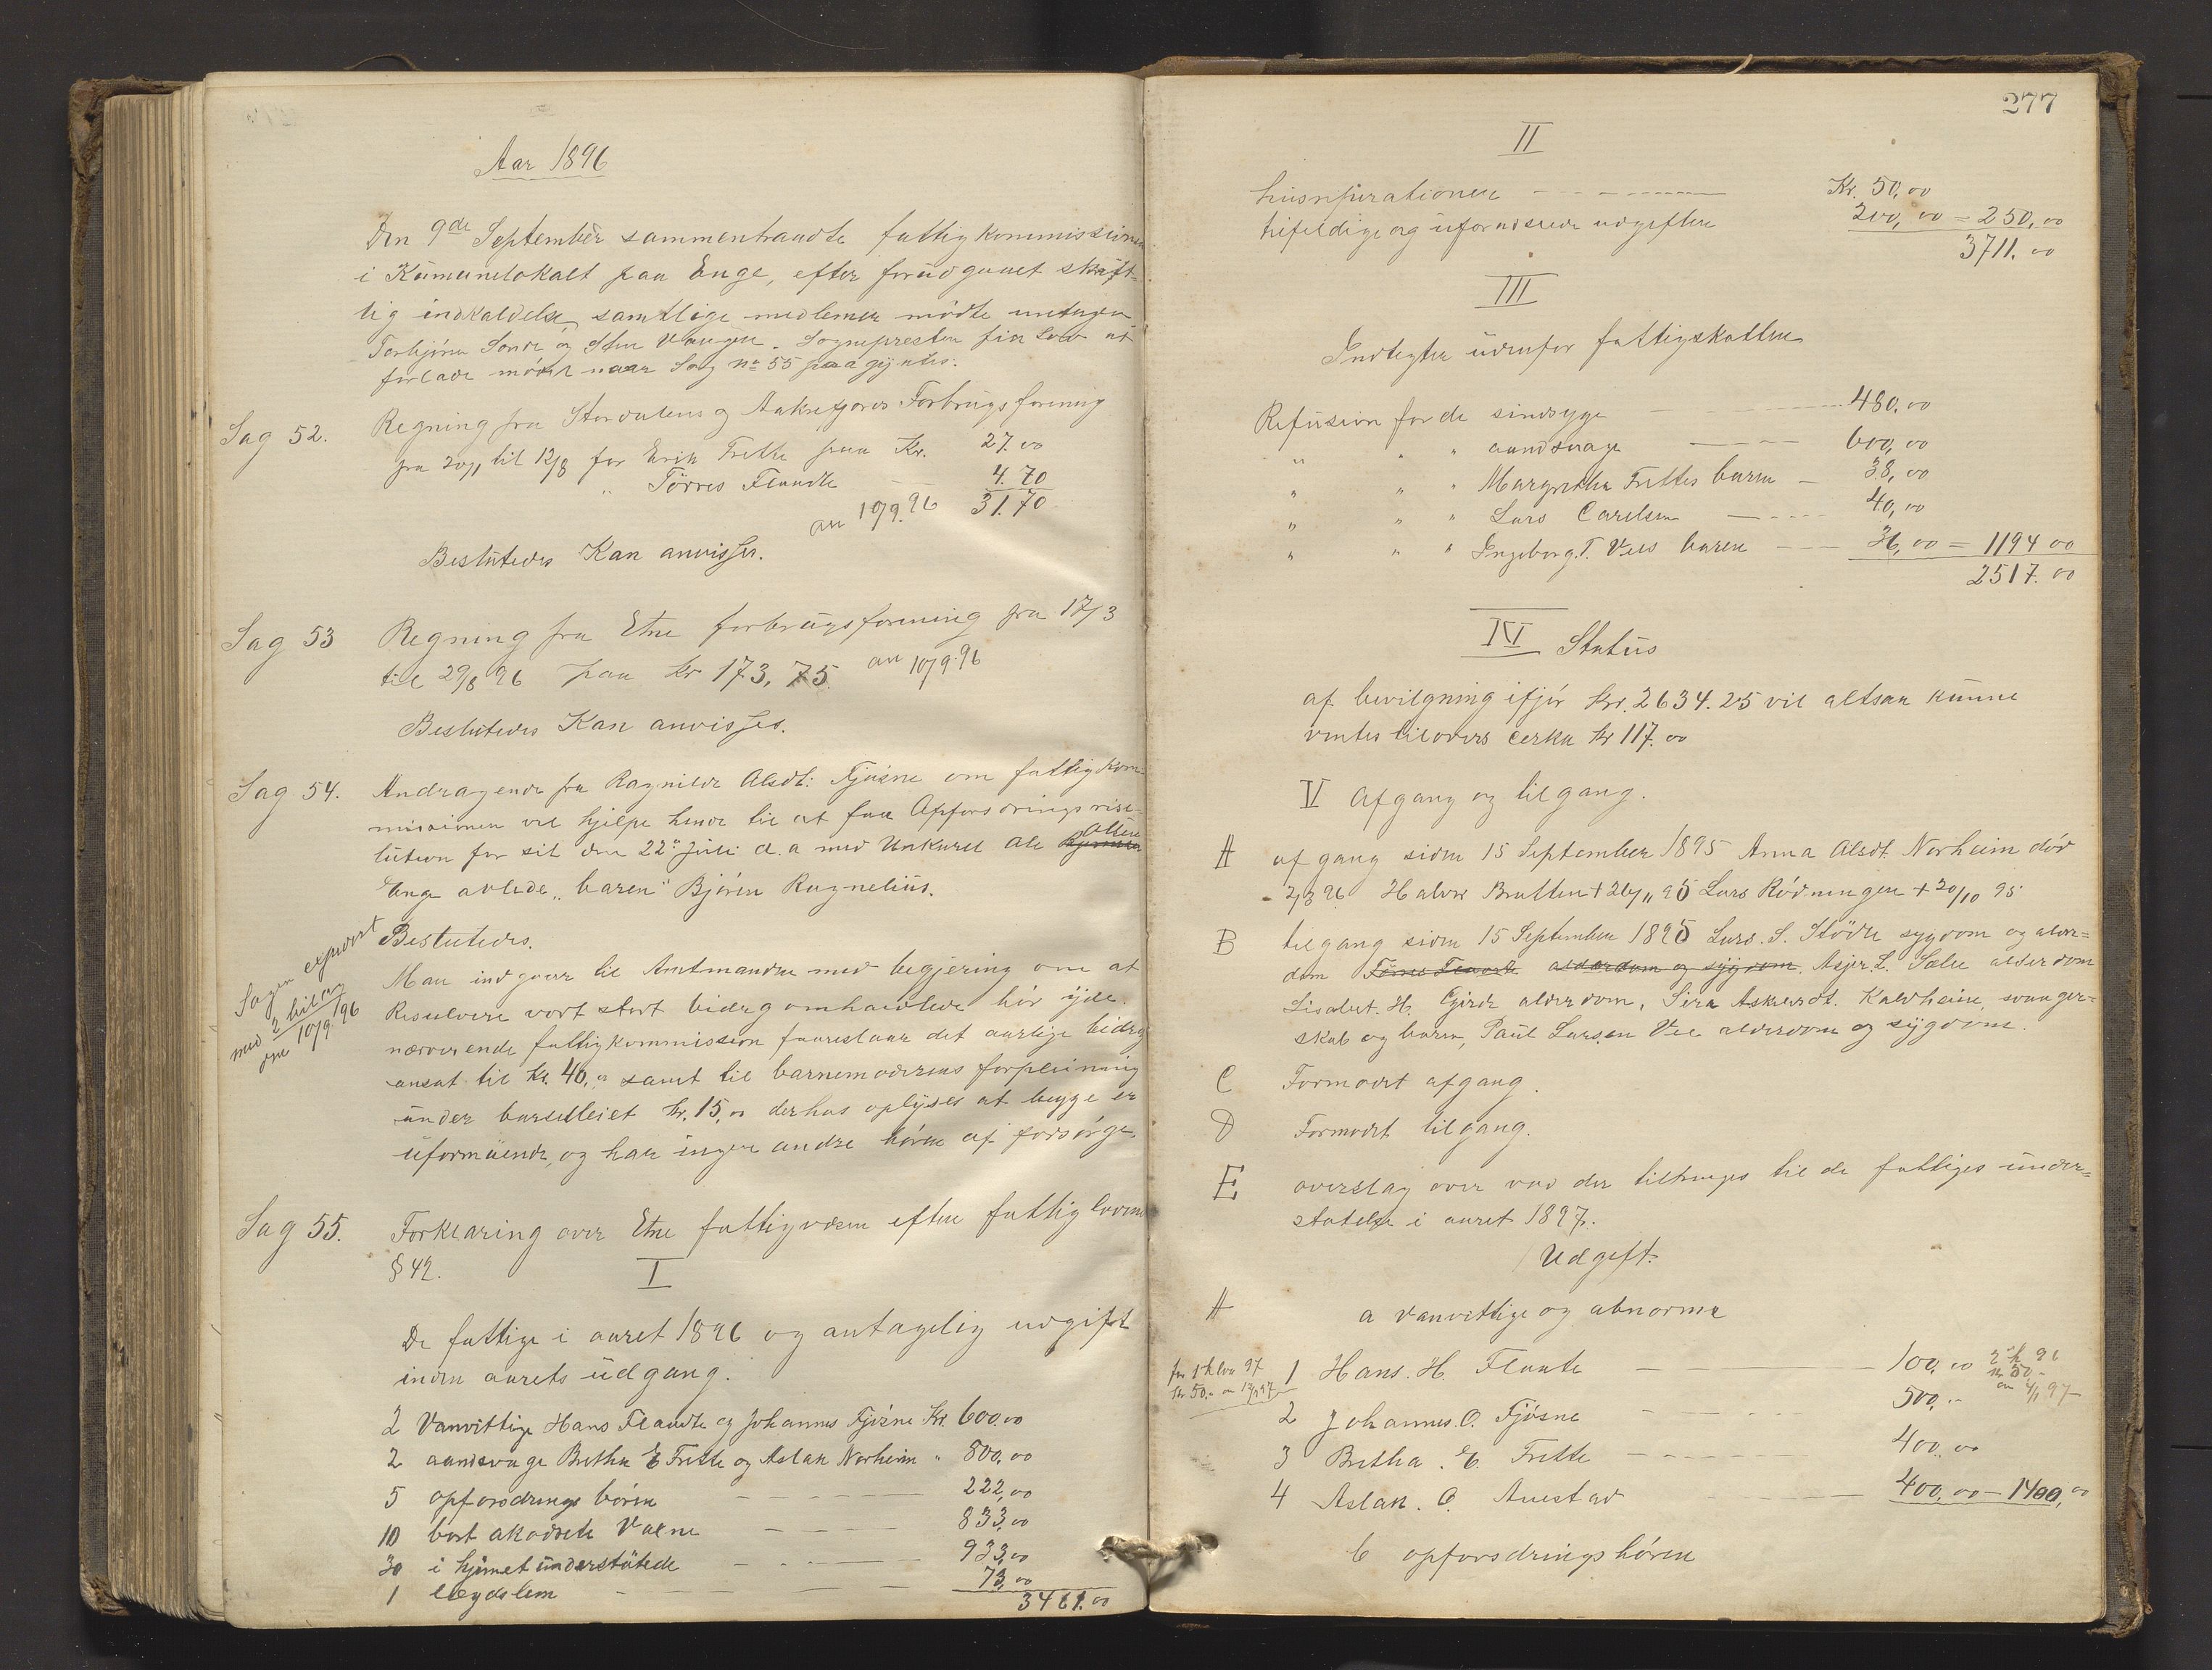 Aar 1896
Den 9de September sammentraadte fattigkommissionen
i Kumunelokalt paa Enge, efter forudgaaet skrift-
lig indkaldelse, samtlige medlemer mødte untagen
Torbjørn Sande og Sten Vaugen. Sognepresten fik Lov at
forlade mødet naar Sag No 55 paagyntes.
Sag 52.
Regning fra Stordalens og Aakrefjorde Forbrugsforening
fra 20/1 til 12/8 for Erik Frette paa Kr. 27.00
" Tørres Flaadte — 4.70
an 10/9.96 31.70
Beslutedes Kan anvisses.
Sag 53
Regning fra Etne forbrugsforening fra 17/3
til 29/8 96 paa kr 173,75. an 10/9.96
Beslutedes Kan anvisses.
Sag 54.
Andragende fra Ragnilde Alsdt: Fjøsne om fattigkom-
missionen vil hjelpe hende til at faa Opfordringsriso-
lution for sit den 22de Juli d.a med Unkarel Ole Olsen
Enge avlede "baren" Bjørn Ragnelius.
Sagen expedert
med 2 bilag
den 10/9 96
Beslutedes.
Man indgaar til Amtmanden med begjering om at
Resulvere vort stort bidrag omhandlede bør yde.
nærverende fattigkommission foureslaar det aarlige bidrag
ansat til Kr. 40," samt til barnemoderens forpleining
under barselleiet kr. 15," derhos oplyses at begge er
uformuende, og har ingen andre børn af forsørge.
Sag 55.
Forklaring over Etne fattigvæsen efter fattigloven
§ 42.
I
De fattige i aaret 1896 og antagelig udgift
inden aarets udgang.
2 Vanvittige Hans Flaadte og Johannes Fjøsne Kr. 600.00
2 aandsvage Bretha E Frette og Aslak Norheim " 800,00
5 opfosdrings børn — 222,00
10 bort akordete Vaxne — 833,00
30 i hjemet understøtede — 933,00
1 lægdslem — 73,00
3461.00
277
II
husreperationer — Kr. 50,00
tilfeldige og uforudseede udgifter 200,00 = 250,00
3711.00
III
Indtegter udenfor fattigskatten
Refusion for de sindsyge — 480,00
" " " aandsvage — 600,00
" " " Margretha Frettes barn — 38,00
" " " Lars Carelsen — 40,00
" " " Ingeborg T. Vees baren — 36,00 = 1194 00
2517.00
IV Status
af bevilgning ifjór Kr. 2634.25 vil altsaa kunne
ventes tilovers cerka Kr 117.00
V Afgang og tilgang.
A af gang siden 15 September 1895 Anna Alsdt. Norheim død
2/3 96 Halvor Bratten + 26/11 95 Lars Rødningen + 20/10 95
B tilgang siden 15 September 1895 Lars. S. Stødle sygdom og alder=
dom Tørres Flaadte alderdom og sygdom. Asjer. L. Sæle alderdom
Lisabet. H. Gjerde alderdom, Sira Askersdt. Kaldheim svanger=
skab og baren, Paul Larsen Vee alderdom og sygdom.
C Formodet afgang.
D Formodet tilgang.
E overslag over vad der tiltrenges til de fattiges under=
støtelse i aaret 1897.
Udgift:
A a vanvittige og abnorme
for 1 halva 97
kr 50,"
1 Hans. H. Flaate — 100,00 2 h 96
kr 50 -
an 4/1 97
2 Johannes. O. Fjøsne — 500,"
3 Bretha. E. Frette — 400,00
4 Aslak. O. Austad — 400,00 — 1400,00
b opfosdringsbørn